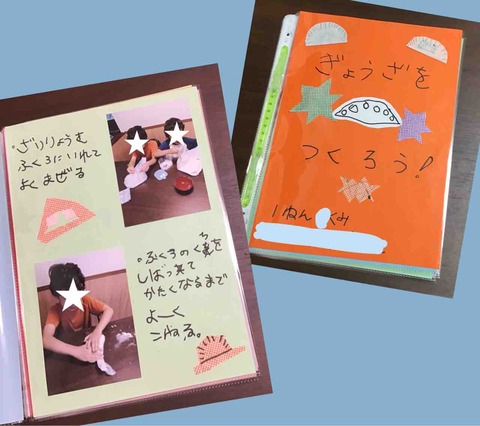 ぎょうざを
つくろう!
1ねん くみ
・ざいりょうを
ふくろにいれて
よくまぜる
・ふくろのくちを
しばって
かたくなるまで
よーく
こねる。